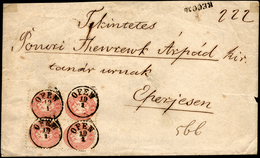 RECOM
222
Tekintetes
Ponori Thewrewk Árpád kir.
tanár urnak
Eperjesen
566
OFEN
OFEN
OFEN
OFEN